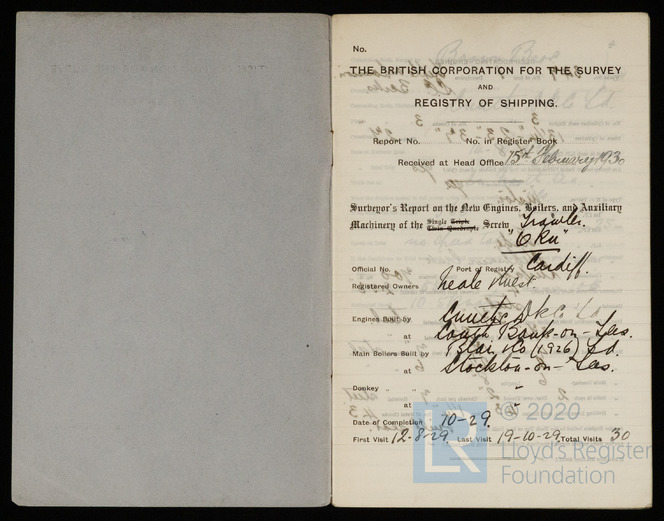 No.
THE BRITISH CORPORATION FOR THE SURVEY
AND
REGISTRY OF SHIPPING.
Report No. No. in Register Book
Received at Head Office 15th February 1930
Surveyor's Report on the New Engines, Boilers, and Auxiliary
Machinery of the Single Triple Twin Quadruple Screw Trawler.
"Oku"
Official No. Port of Registry Cardiff.
Registered Owners Neale & West.
Engines Built by Smiths Dk Co Ld
at South Bank-on-Tees.
Main Boilers Built by Blair & Co (1926) Ld.
at Stockton-on-Tees.
Donkey " "
at "
Date of Completion 10-29.
First Visit 12-8-29 Last Visit 19-10-29. Total Visits 30
© 2020
LR
Lloyd's Register
Foundation